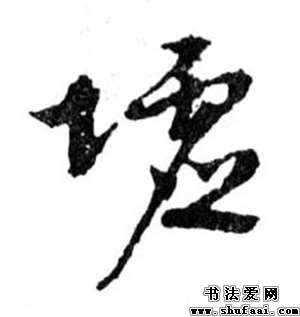 墟
书法爱网
www.shufaai.com